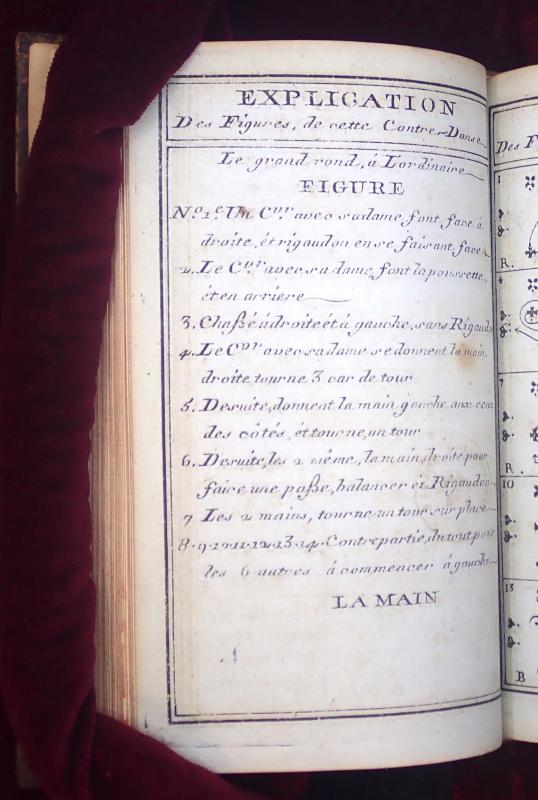 EXPLICATION
Des Figures, de cette Contre-Danse
Le grand rond, à L'ordinaire
FIGURE
Nº 1e Un Cer avec sa dame, font face à
droite, et rigaudon en se faisant face
2. Le Cer avec sa dame, font la poussette
et en arriere
3. Chaßé à droite et à gauche, sans Rigaudon
4. Le Cer avec sa dame se donnent la main
droite tourne 3 car de tour
5. Desuite, donnent la main gauche aux ceux
des côtés, et tourne, un tour
6. Desuite, les 2 même, la main, droite pour
faire une paße, balancer et Rigaudon
7 Les 2 mains, tourne un tour sur place
8. 9. 10. 11. 12. 13. 14. Contrepartie, du tout pour
les 6 autres à commencer à gauche
LA MAIN
Des F
1
R.
4
7
R.
10
13
B